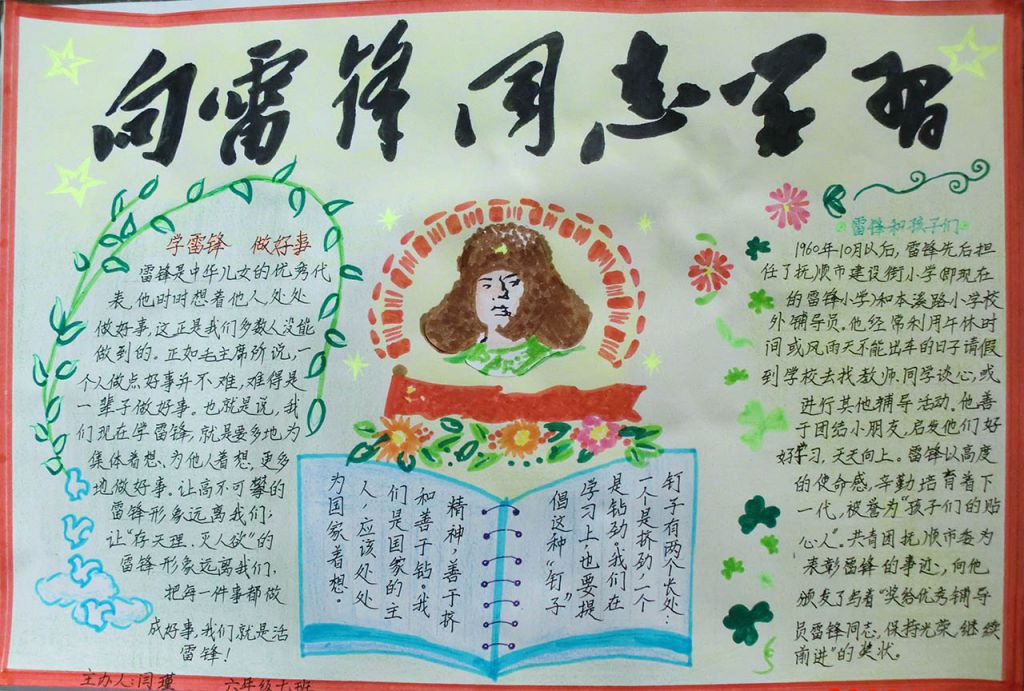 向雷锋同志学习
学雷锋 做好事
雷锋是中华儿女的优秀代
表,他时时想着他人,处处
做好事,这正是我们多数人没能
做到的。正如毛主席所说,一
个人做点好事并不难,难得是
一辈子做好事。也就是说,我
们现在学雷锋,就是要多地为
集体着想、为他人着想,更多
地做好事。让高不可攀的
雷锋形象远离我们;
让“存天理、灭人欲”的
雷锋形象远离我们,
把每一件事都做
成好事,我们就是活
雷锋!
钉子有两个长处:
一个是挤劲,一个
是钻劲,我们在
学习上,也要提
倡这种“钉子”
精神,善于挤
和善于钻。我
们是国家的主
人,应该处处
为国家着想。
雷锋和孩子们
1960年10月以后,雷锋先后担
任了抚顺市建设街小学(即现在
的雷锋小学)和本溪路小学校
外辅导员。他经常利用午休时
间或风雨天不能出车的日子请假
到学校去找教师、同学谈心,或
进行其他辅导活动。他善
于团结小朋友,启发他们好
好学习,天天向上。雷锋以高度
的使命感,辛勤培育着下
一代,被誉为“孩子们的贴
心人”。共青团抚顺市委为
表彰雷锋的事迹,向他
颁发了写着“奖给优秀辅导
员雷锋同志,保持光荣,继续
前进”的奖状。
主办人:闫瑾 六年级七班